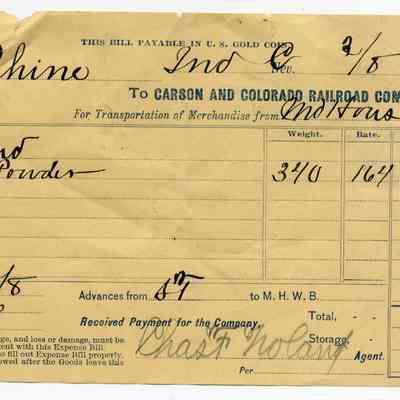 THIS BILL PAYABLE IN U. S. GOLD COIN
Rhine Ind Co Nev. 2/8
To CARSON AND COLORADO RAILROAD COM
For Transportation of Merchandise from
Weight. Rate.
Powder 340 164
/8
Advances from to M. H. W. B.
Received Payment for the Company, Total, - -
Storage, -
age, and loss or damage, must be
ent with this Expense Bill.
o fill out Expense Bill properly.
owed after the Goods leave this
Chas F Noland Agent.
Per